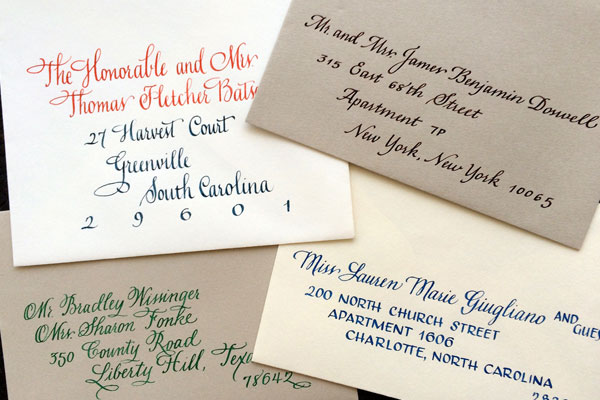 The Honorable and Mrs
Thomas Fletcher
27 Harvest Court
Greenville
South Carolina
2 9 6 0 1
Mr. and Mrs. James Benjamin Doswell
315 East 68th Street
Apartment 7P
New York, New York 10065
Mr. Bradley Wissinger
Mrs. Sharon Fonke
350 County Road
Liberty Hill,
78642
Miss Lauren Marie Giugliano AND
200 NORTH CHURCH STREET
APARTMENT 1606
CHARLOTTE, NORTH CAROLINA